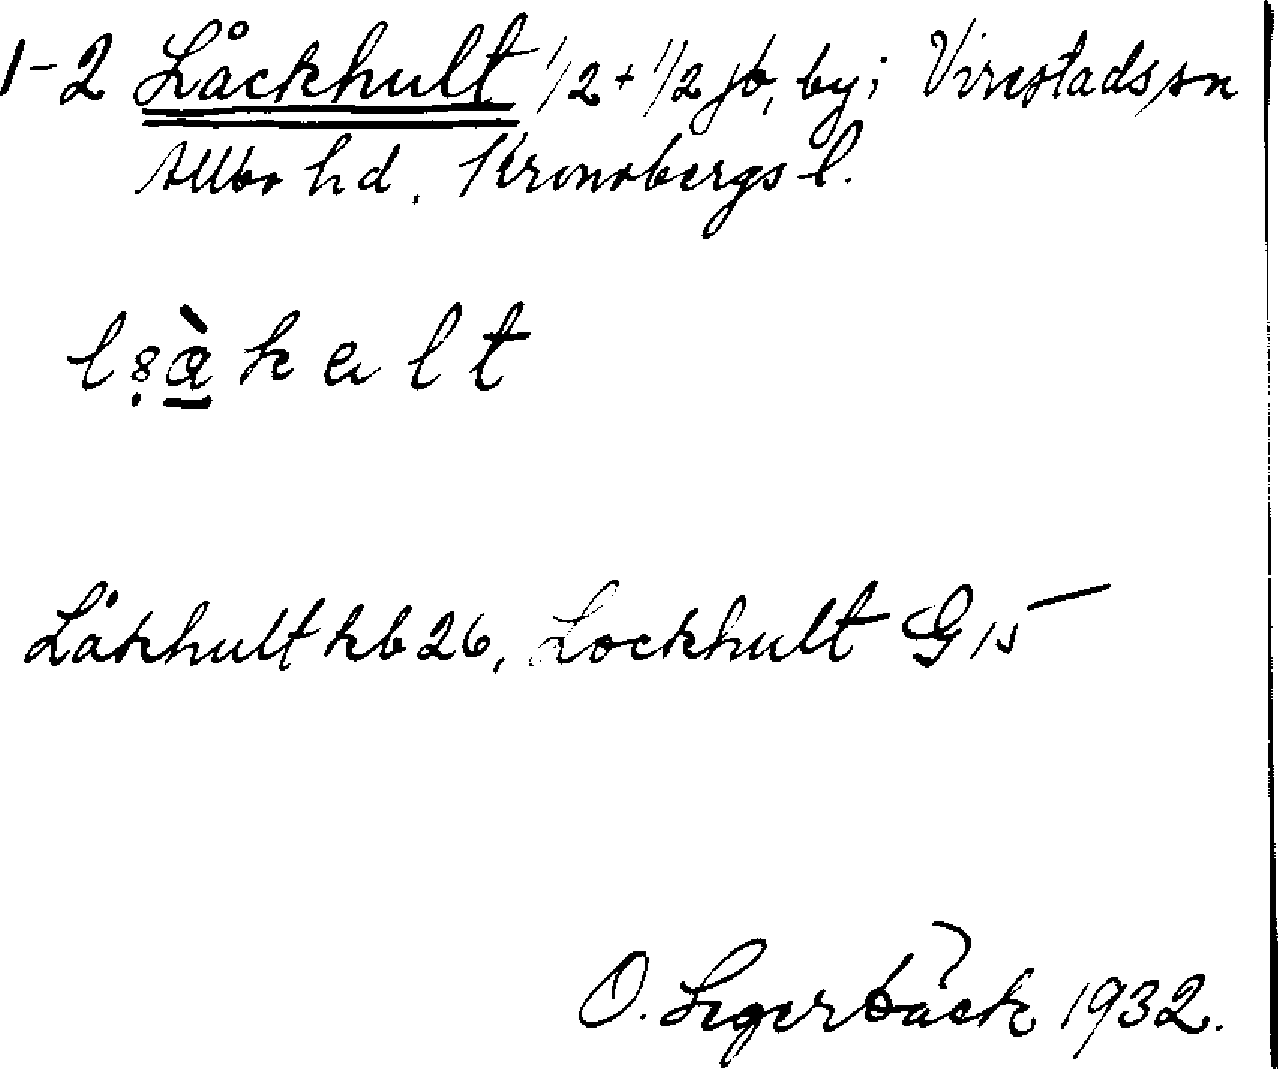 1-2 Låckhult 1/2 + 1/2 jb, by i Virestads sn
Allbo hd. Kronobergs l.
Låkhult kb 26, Lockhult G 15
O. Legerbäck 1932.